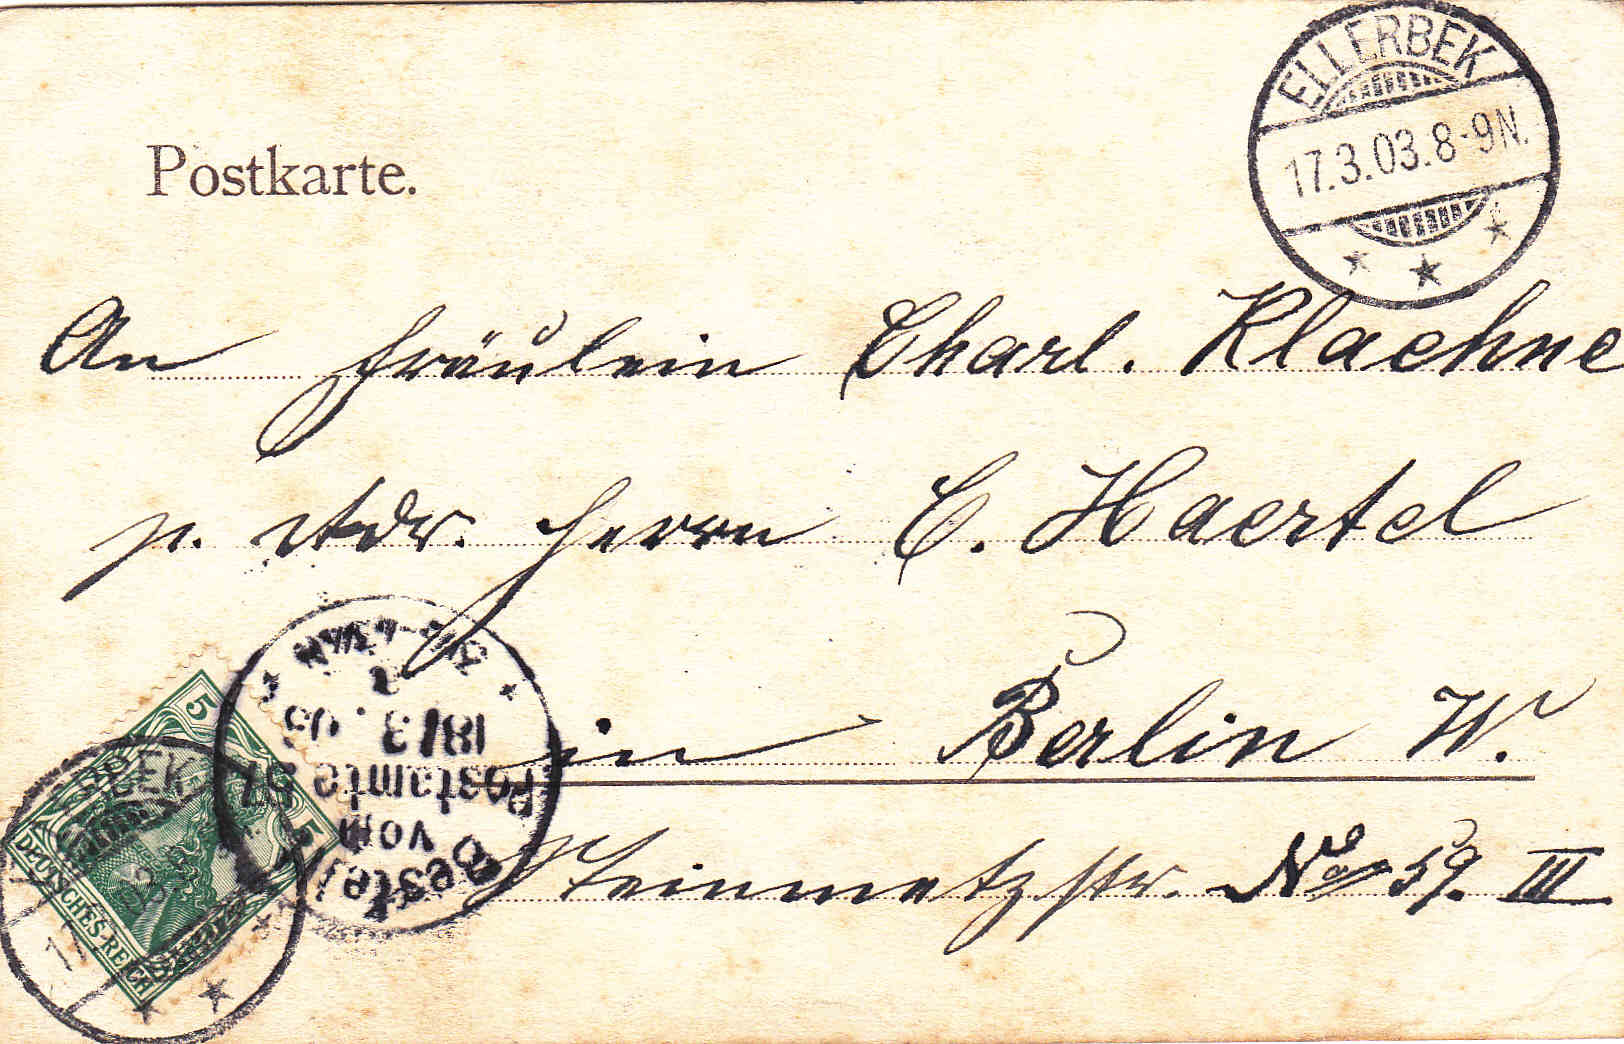 Postkarte.
ELLERBEK
17.3.03.8-9N.
An Fräulein Charl. Klaehne
p. Adr. Herrn C. Haertel
in Berlin W.
Steinmetzstr. No 59. III
5
5
DEUTSCHES REICH
ELLERBEK
17
03
Bestellt
vom
Postamte 57
18/3.03